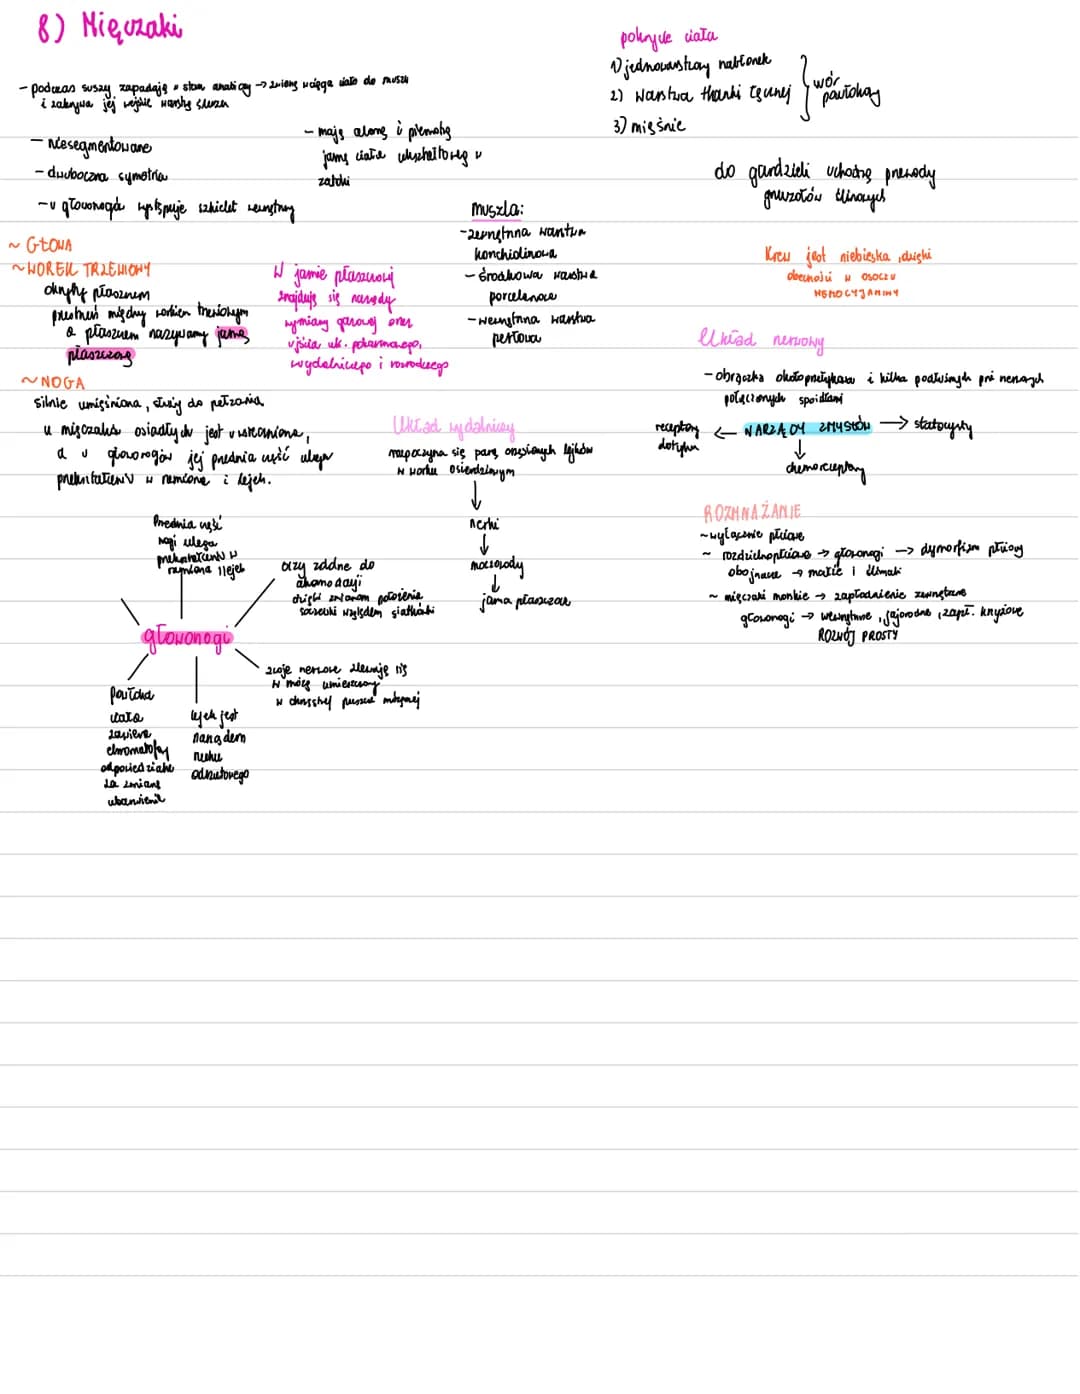 8) Mięczaki
- podczas suszy zapadają w stan anabiozy → zwierzę wciąga ciało do muszli
i zakrywa jej wejście warstwą śluzu
- niesegmentowane
- dwuboczna symetria
- u głowonogów występuje szkielet wewnętrzny
- mają celomę i pierwotną
jamę ciała ukształtowaną w
zatoki
~ GŁOWA
~ WOREK TRZEWIOWY
okryty płaszczem
przestrzeń między workiem trzewiowym
a płaszczem nazywamy jamą
płaszczową
~ NOGA
silnie umięśniona, służy do pełzania
u mięczaków osiadłych jest uwsteczniona,
a u głowonogów jej przednia część ulega
przekształceniu w ramiona i lejek.
W jamie płaszczowej
znajdują się narządy
wymiany gazowej oraz
ujścia uk. pokarmowego,
wydalniczego i rozrodczego
muszla:
- zewnętrzna warstwa
konchiolinowa
- środkowa warstwa
porcelanowa
- wewnętrzna warstwa
perłowa
Układ wydalniczy
rozpoczyna się parą orzęsionych lejków
w worku osierdziowym
↓
nerki
↓
moczowody
↓
jama płaszczowa
Przednia część
nogi ulega
przekształceniu w
ramiona i lejek
oczy zdolne do
akomodacji
dzięki zmianom położenia
soczewki względem siatkówki
głowonogi
zwoje nerwowe zlewają się
w mózg umieszczony
w chrzęstnej puszce mózgowej
powłoka
ciała
zawiera
chromatofory
odpowiedzialne
za zmianę
ubarwienia
lejek jest
narządem
ruchu
odrzutowego
pokrycie ciała
1) jednowarstwowy nabłonek
2) warstwa tkanki łącznej
3) mięśnie
wór
powłokowy
do gardzieli uchodzą przewody
gruczołów ślinowych
Krew jest niebieska, dzięki
obecności w osoczu
HEMOCYJANINY
Układ nerwowy
- obrączka okołoprzełykowa i kilka podłużnych pni nerwowych
połączonych spoidłami
receptory
dotyku
← NARZĄDY ZMYSŁÓW → statocysty
↓
chemoreceptory
ROZMNAŻANIE
~ wyłącznie płciowe
~ rozdzielnopłciowe → głowonogi → dymorfizm płciowy
obojnacze → małże i ślimaki
~ mięczaki morskie → zapłodnienie zewnętrzne
głowonogi → wewnętrzne, jajorodne, zapł. krzyżowe
ROZWÓJ PROSTY